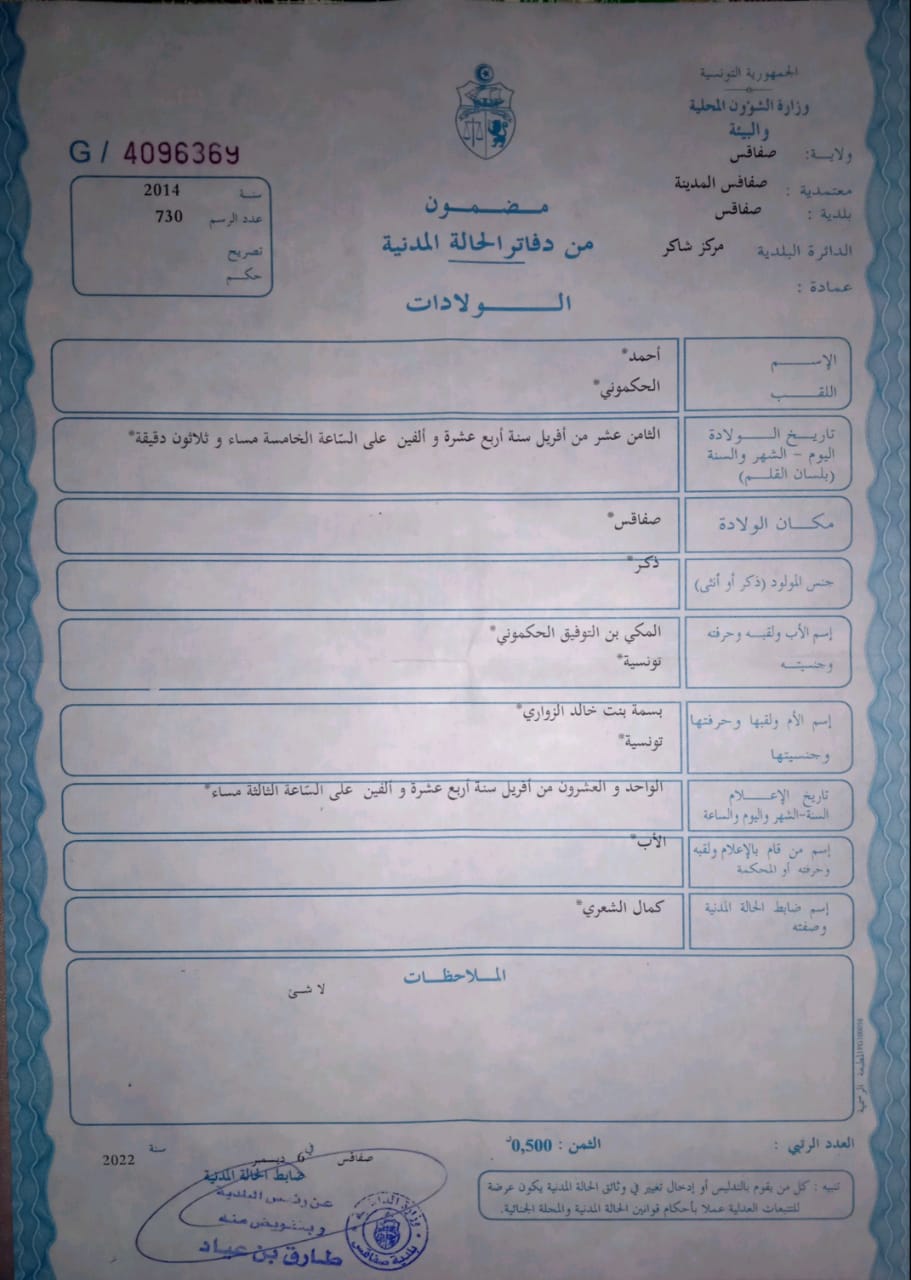 الجمهورية التونسية
وزارة الشؤون المحلية
والبيئة
ولاية: صفاقس
معتمدية : صفاقس المدينة
بلدية : صفاقس
الدائرة البلدية مركز شاكر
عمادة :
G / 4096369
سنة 2014
عدد الرسم 730
تصريح
حكم
مضمون
من دفاتر الحالة المدنية
الولادات
الإسم أحمد*
اللقب الحكموني*
تاريخ الولادة
اليوم - الشهر والسنة
(بلسان القلم)
الثامن عشر من أفريل سنة أربع عشرة و ألفين على السّاعة الخامسة مساء و ثلاثون دقيقة*
مكان الولادة صفاقس*
جنس المولود (ذكر أو أنثى) ذكر*
إسم الأب ولقبه وحرفته المكي بن التوفيق الحكموني*
وجنسيته تونسية*
إسم الأم ولقبها وحرفتها بسمة بنت خالد الزواري*
وجنسيتها تونسية*
تاريخ الإعلام
السنة-الشهر واليوم والساعة
الواحد و العشرون من أفريل سنة أربع عشرة و ألفين على السّاعة الثالثة مساء*
إسم من قام بالإعلام ولقبه
وحرفته أو المحكمة
الأب*
إسم ضابط الحالة المدنية
وصفته
كمال الشعري*
الملاحظات
لا شئ
العدد الرتبي :
الثمن : 0,500د
تنبيه : كل من يقوم بالتدليس أو إدخال تغيير في وثائق الحالة المدنية يكون عرضة
للتتبعات العدلية عملا بأحكام قوانين الحالة المدنية والمجلة الجنائية.
صفاقس في 6 ديسمبر سنة 2022
ضابط الحالة المدنية
عن رئيس البلدية
وبتفويض منه
طارق بن عياد
بلدية صفاقس